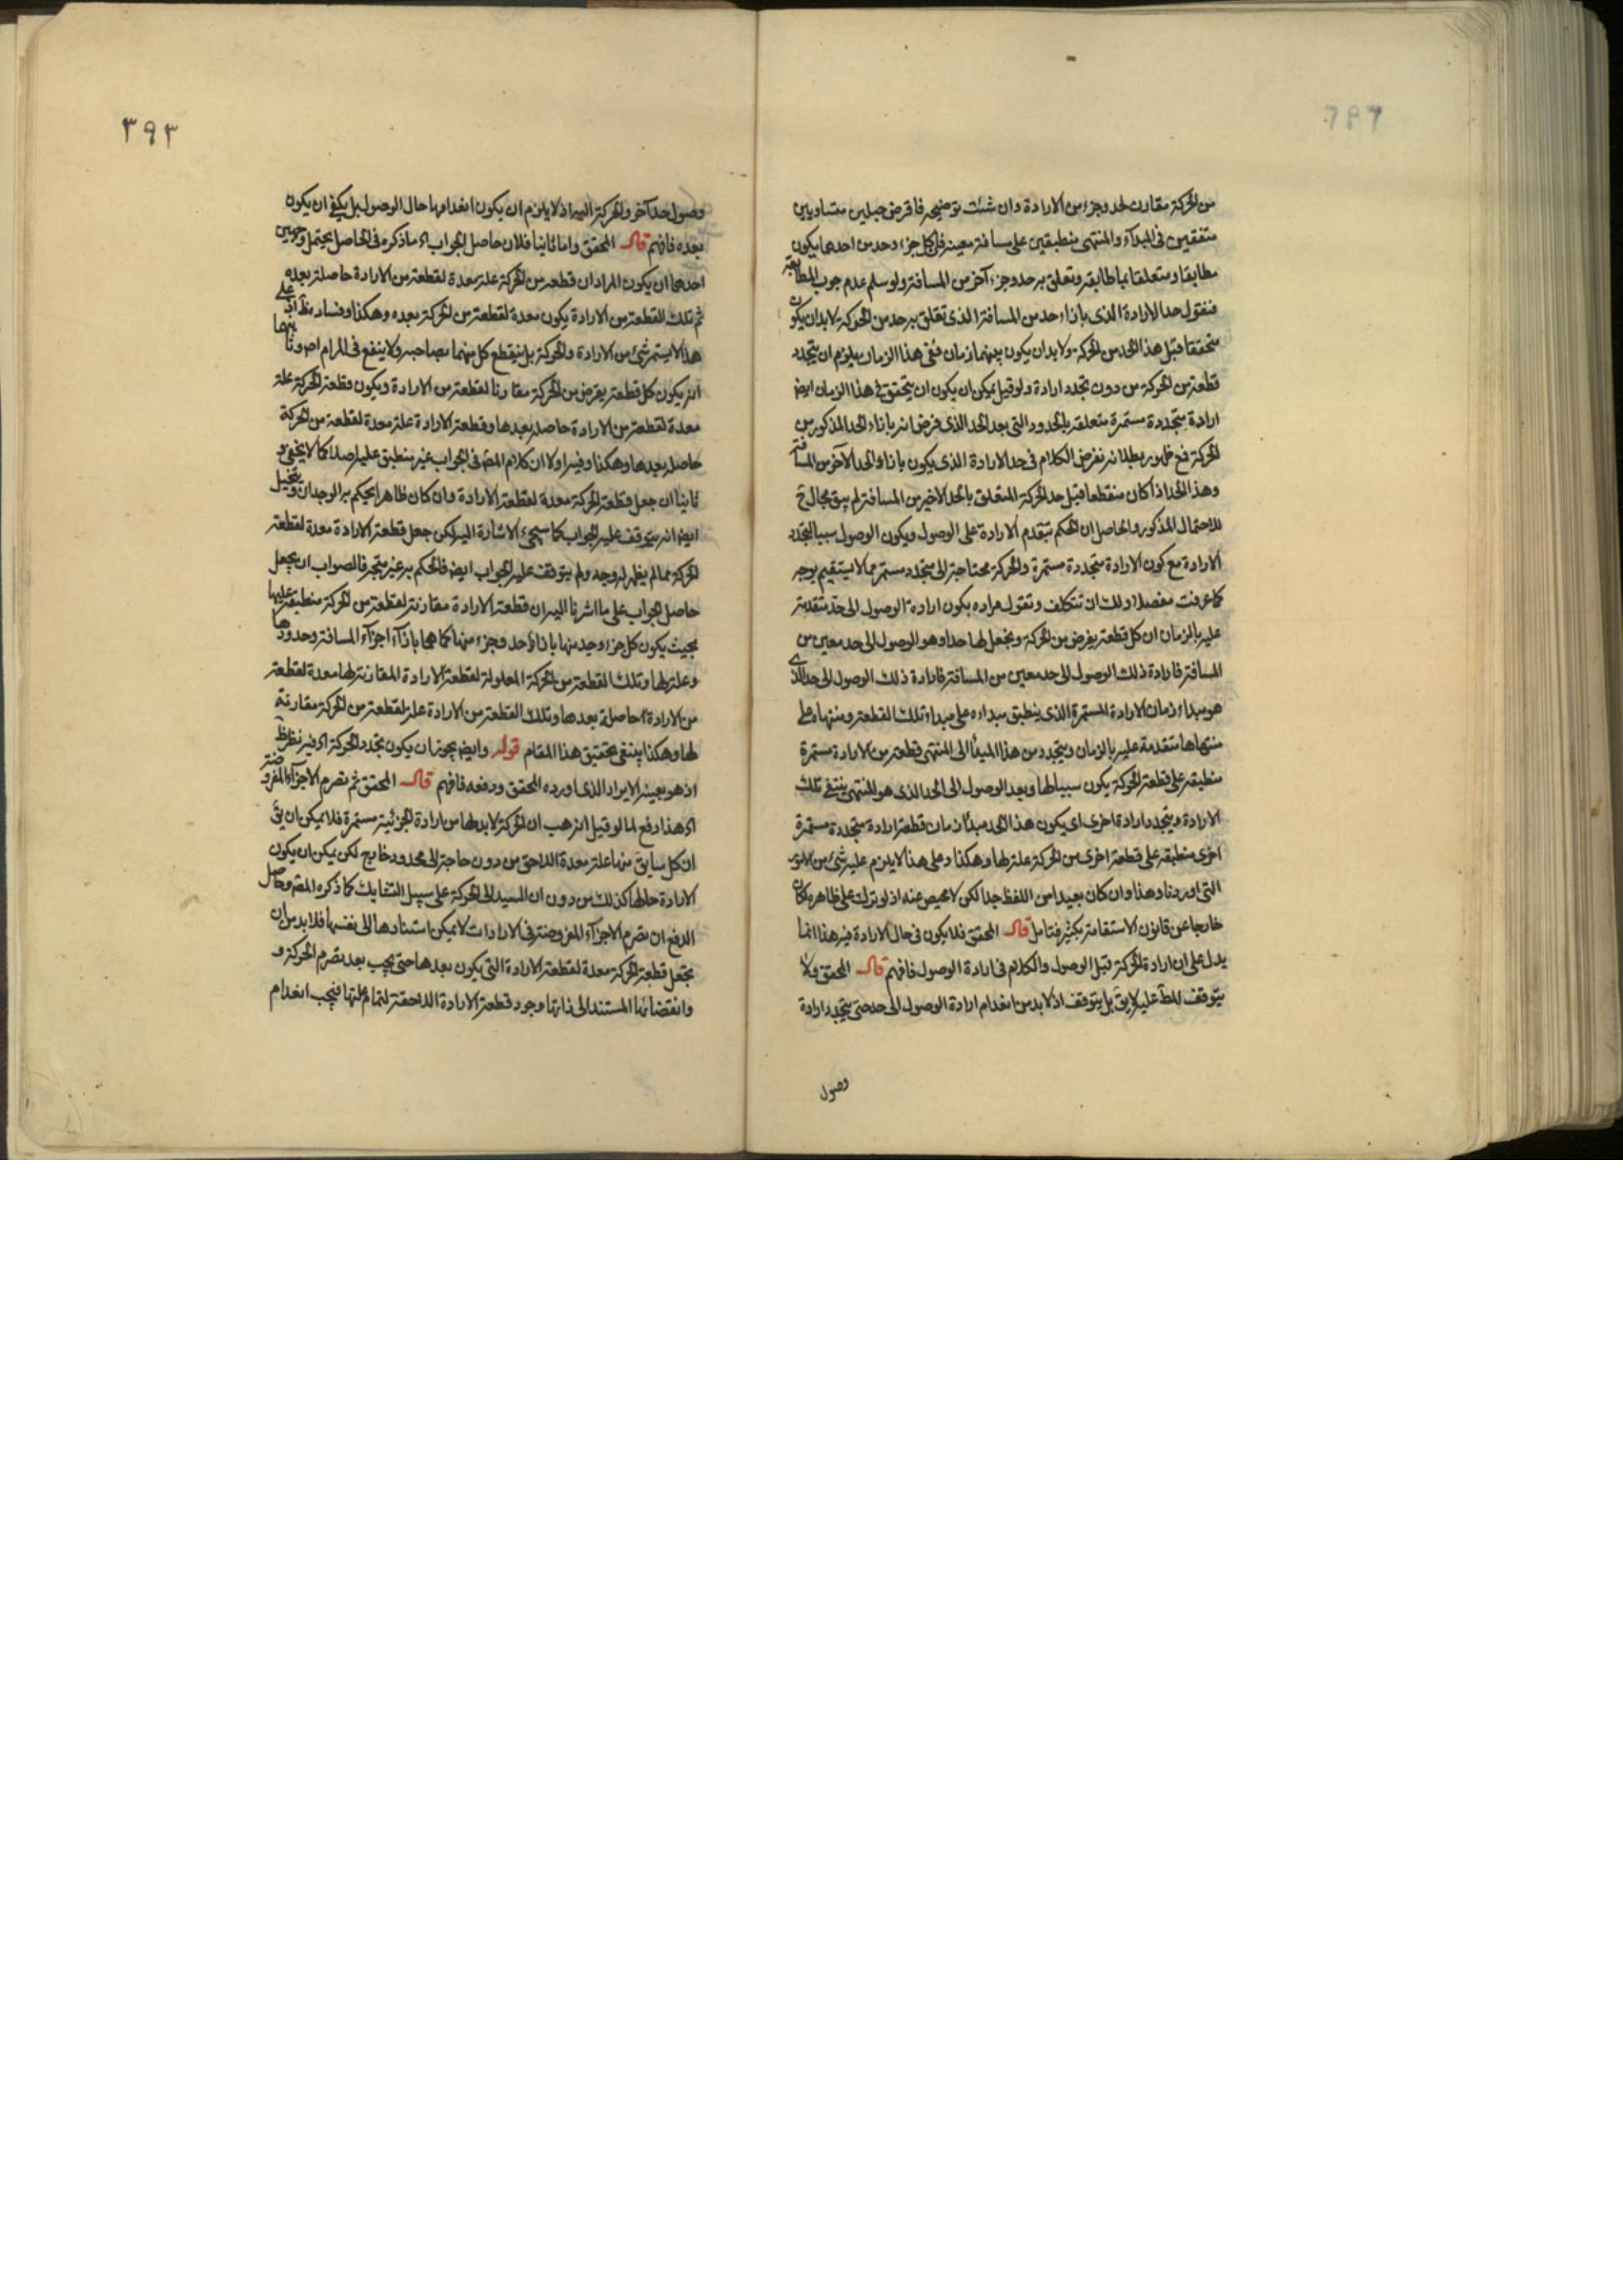 من الحركة مقارن لحد وجزء من الارادة وان شئت توضيحه فافرض حبلين متساويين
متفقين في المبدأ والمنتهى منطبقين على مسافة معينة فلكل جزء وحد من احدهما يكون
مطابقا ومتعلقا بما طابقه وتعلق به حد وجزء آخر من المسافة ولو سلم عدم وجوب المطابقة
فنقول حد الارادة الذي بازاء حد من المسافة الذي تعلق به حد من الحركة لابد ان يكون
متحققا قبل هذا الحد من الحركة ولابد ان يكون بينهما زمان ففي هذا الزمان يلزم ان يتجدد
قطعة من الحركة من دون تجدد ارادة ولو قيل يمكن ان يكون ان يتحقق في هذا الزمان ايض
ارادة متجددة مستمرة متعلقة بالحدود التي بعد الحد الذي فرض انه بازاء الحد المذكور من
الحركة فمع ظهور بطلانه نفرض الكلام في حد الارادة الذي يكون بازاء الحد الآخر من المسافة
وهذا الحد اذا كان منقطعا قبل حد الحركة المتعلق بالحد الاخير من المسافة لم يبق مجال ح
للاحتمال المذكور والحاصل ان الحكم بتقدم الارادة على الوصول ويكون الوصول سببا لتجدد
الارادة مع كون الارادة متجددة مستمرة والحركة محتاجة الى متجدد مستمر مما لا يستقيم بوجه
كما عرفت مفصلا ولك ان تتكلف وتقول مراده بكون ارادة الوصول الى حد متقدمة
عليه بالزمان ان كل قطعة يفرض من الحركة ونجعل لها حدا وهو الوصول الى حد معين من
المسافة فارادة ذلك الوصول الى حد معين من المسافة فارادة ذلك الوصول الى حد الذي
هو مبداء زمان الارادة المستمرة الذي ينطبق مبداءه على مبداء تلك القطعة ومنتهاه على
منتهاها متقدمة عليه بالزمان ويتجدد من هذا المبدأ الى المنتهى قطعة من الارادة مستمرة
منطبقة على قطعة الحركة يكون سببا لها وبعد الوصول الى الحد الذي هو المنتهى ينتفي تلك
الارادة ويتجدد ارادة اخرى اي يكون هذا الحد مبدأ زمان قطعة ارادة متجددة مستمرة
اخرى منطبقة على قطعة اخرى من الحركة علة لها وهكذا وعلى هذا لا يلزم عليه شيء من الامور
التي اوردنا وهذا وان كان بعيدا من اللفظ جدا لكن لا محيص عنه اذ لو ترك على ظاهره لكان
خارجا عن قانون الاستقامة بكثير فتامل قال المحقق فلا يكون في حال الارادة فيه هذا انما
يدل على ان ارادة الحركة قبل الوصول والكلام في ارادة الوصول فافهم قال المحقق ولا
يتوقف المط عليه لا يق بل يتوقف اذ لابد من انعدام ارادة الوصول الى حد حتى يتجدد ارادة
وصول
٣٩٣
وصول حد آخر والحركة اليه اذ لا يلزم ان يكون انعدامها حال الوصول بل يكفي ان يكون
بعده فافهم قال المحقق واما ثانيا فلان حاصل الجواب اه ما ذكره في الحاصل يحتمل وجهين
احدهما ان يكون المراد ان قطعة من الحركة علة معدة لقطعة من الارادة حاصلة بعده
ثم تلك القطعة من الارادة يكون معدة لقطعة من الحركة بعده وهكذا وفساده ظ اذ على
هذا لا يستمر شيء من الارادة والحركة بل ينقطع كل منهما بصاحبه ولا ينفع في المرام اصلا وثانيهما
ان يكون كل قطعة يفرض من الحركة مقارنا لقطعة من الارادة ويكون قطعة الحركة علة
معدة لقطعة من الارادة حاصلة بعدها وقطعة الارادة علة معدة لقطعة من الحركة
حاصلة بعدها وهكذا وفيه اولا ان كلام المص في الجواب غير منطبق عليه اصلا كما لا يخفى و
ثانيا ان جعل قطعة الحركة معدة لقطعة الارادة وان كان ظاهرا يحكم به الوجدان ويتخيل
ايض انه يتوقف عليه الجواب كما سيجيء الاشارة اليه لكن جعل قطعة الارادة معدة لقطعة
الحركة مما لم يظهر له وجه ولم يتوقف عليه الجواب ايض فالحكم به غير متجه فالصواب ان يجعل
حاصل الجواب على ما اشرنا اليه ان قطعة الارادة مقارنة لقطعة من الحركة منطبقة عليها
بحيث يكون كل جزء وحد منها بازاء حد وجزء منها كما هما بازاء اجزآء المسافة وحدودها
وعلة لها وتلك القطعة من الحركة المعلولة لقطعة الارادة المقارنة لها معدة لقطعة
من الارادة الحاصلة بعدها وتلك القطعة من الارادة علة لقطعة من الحركة مقارنة
لها وهكذا ينبغي تحقيق هذا المقام قوله وايض يجوز ان يكون تجدد الحركة اه فيه نظر ظ
اذ هو بعينه الايراد الذي اورده المحقق ودفعه فافهم قال المحقق ثم تصرم الاجزآء المفروضة
اه هذا دفع لما لو قيل انه هب ان الحركة لابد لها من ارادة الجزئية مستمرة فلا يمكن ان يق
ان كل سابق منها علة معدة اللاحق من دون حاجة الى محدود خارج لكن يمكن ان يكون
الارادة حالها كذلك من دون ان السيد الى الحركة على سبيل التشابك كما ذكره المص وحاصل
الدفع ان تصرم الاجزآء المفروضة في الارادات لا يمكن استنادها الى نفسها فلابد من ان
يجعل قطعة الحركة معدة لقطعة الارادة التي يكون بعدها حتى يجب بعد تصرم الحركة و
وانقضائها المستند الى ذاتها وجود قطعة الارادة اللاحقة لتمام علتها فيجب انعدام